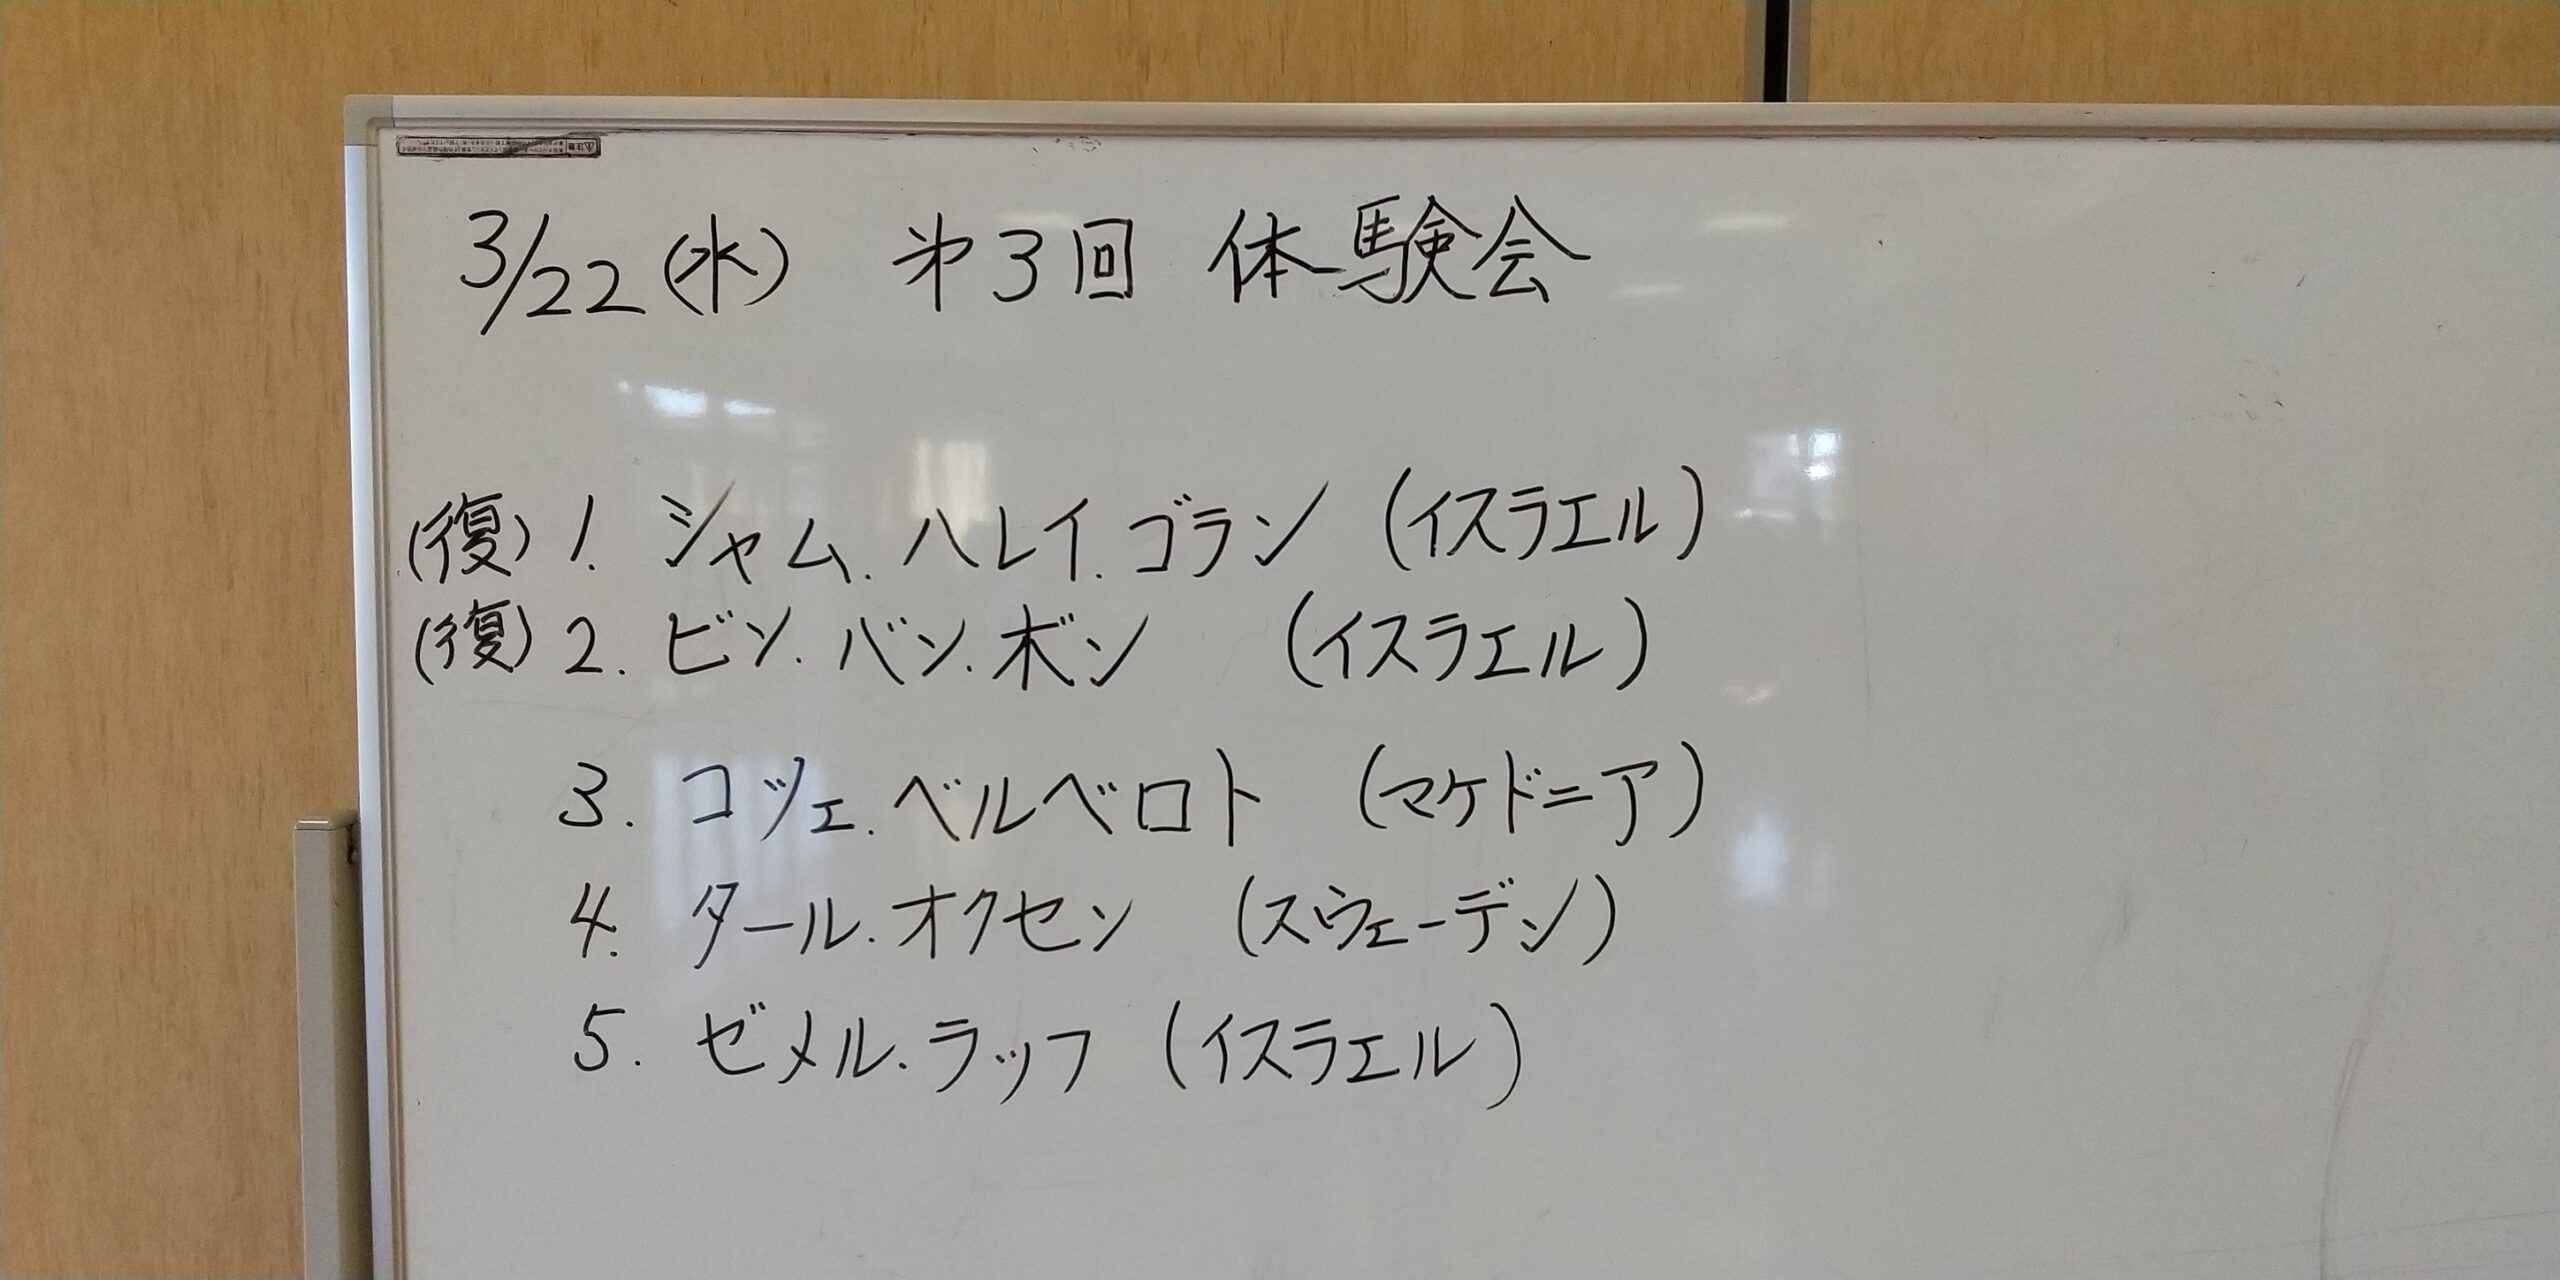 3/22(水) 第3回 体験会
(復) 1. シャム.ハレイ.ゴラン (イスラエル)
(復) 2. ビン.バン.ボン (イスラエル)
3. コツェ.ベルベロト (マケドニア)
4. タール.オクセン (スウェーデン)
5. ゼメル.ラッフ (イスラエル)